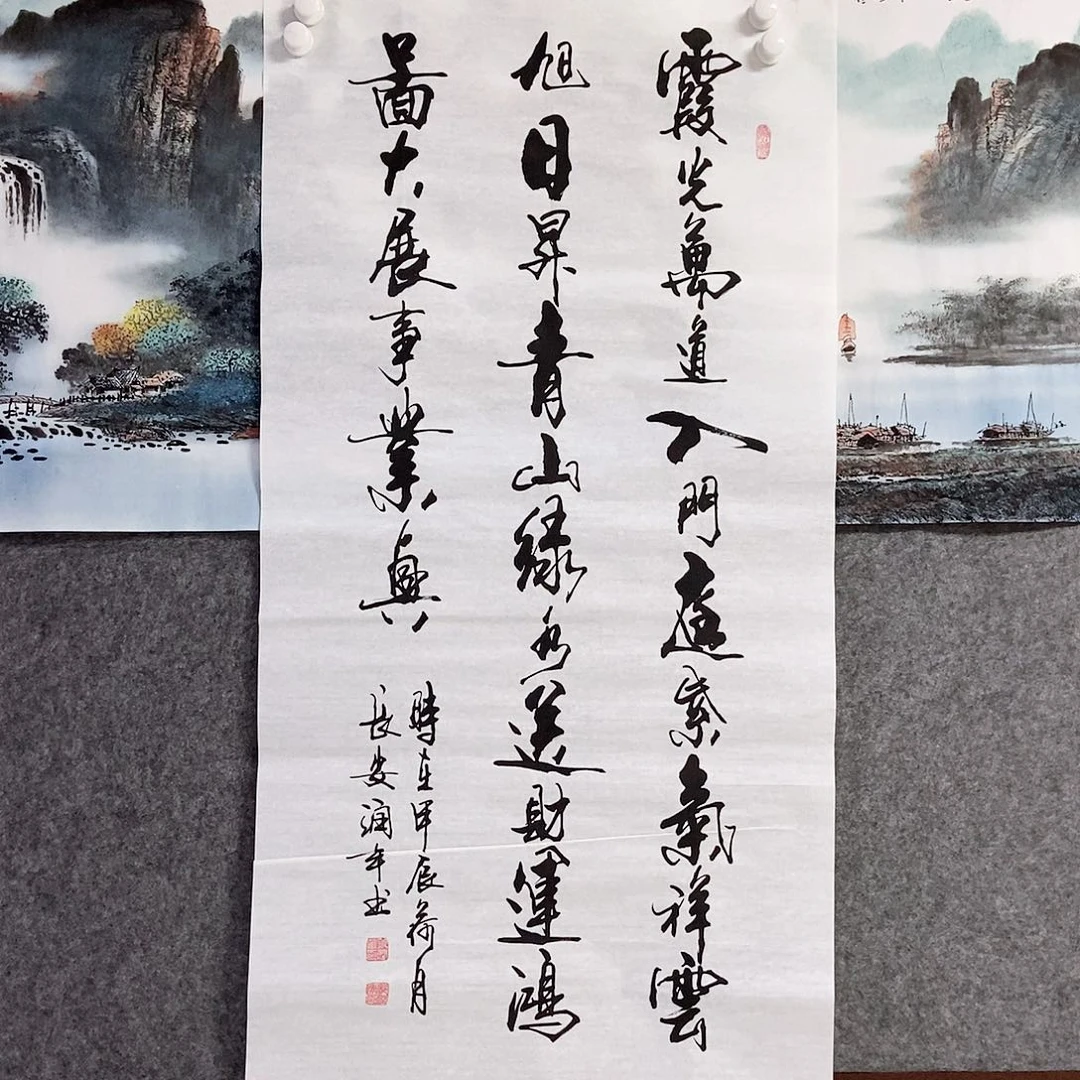 霞光萬道入門庭紫氣祥雲
旭日昇青山緑水送財運鴻
圖大展事業興
時在甲辰荷月
長安潤年书